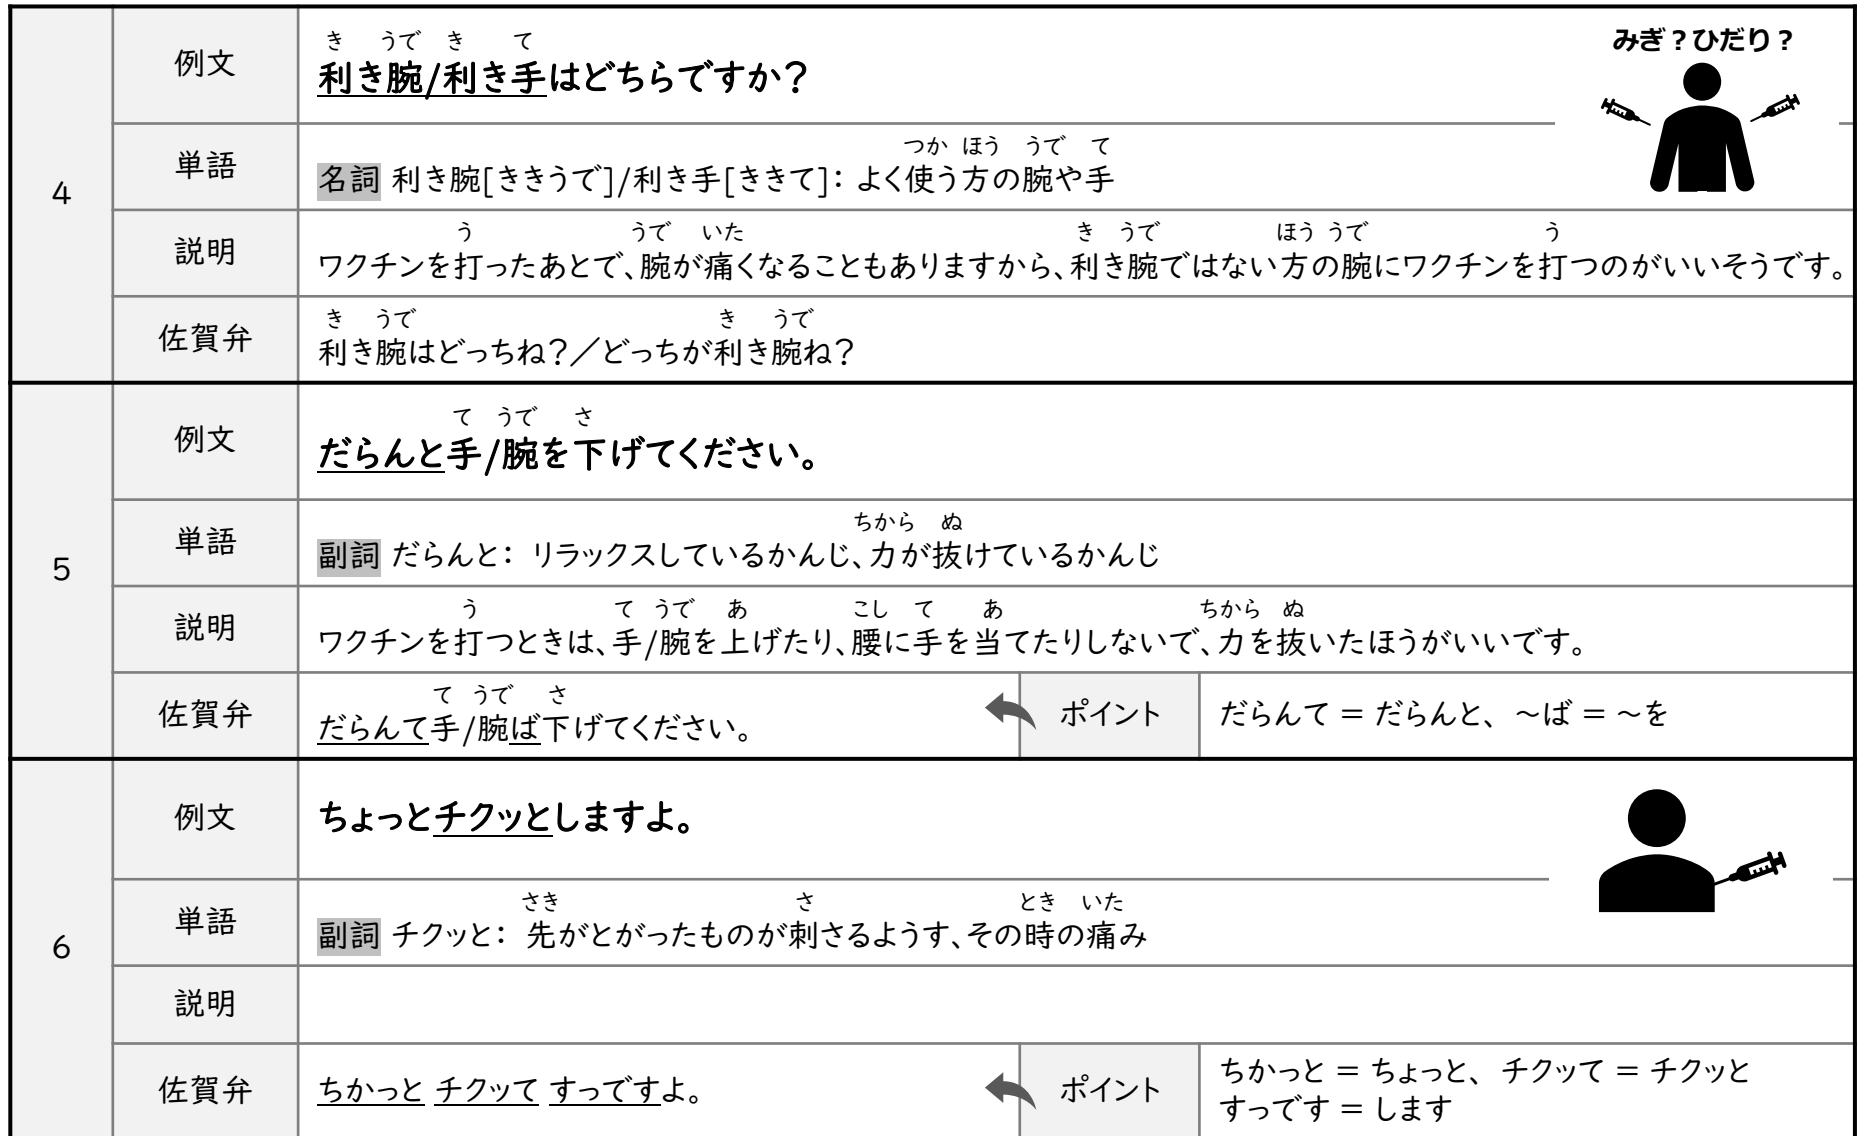 4
例文
き うで き て
利き腕/利き手はどちらですか?
みぎ?ひだり?
単語
つか ほう うで て
名詞 利き腕[ききうで]/利き手[ききて]: よく使う方の腕や手
説明
う うで いた き うで ほう うで う
ワクチンを打ったあとで、腕が痛くなることもありますから、利き腕ではない方の腕にワクチンを打つのがいいそうです。
佐賀弁
き うで き うで
利き腕はどっちね?/どっちが利き腕ね?
5
例文
て うで さ
だらんと手/腕を下げてください。
単語
ちから ぬ
副詞 だらんと: リラックスしているかんじ、力が抜けているかんじ
説明
う て うで あ こし て あ ちから ぬ
ワクチンを打つときは、手/腕を上げたり、腰に手を当てたりしないで、力を抜いたほうがいいです。
佐賀弁
て うで さ
だらんて手/腕ば下げてください。
ポイント
だらんて = だらんと、 ~ば = ~を
6
例文
ちょっとチクッとしますよ。
単語
さき さ とき いた
副詞 チクッと: 先がとがったものが刺さるようす、その時の痛み
説明
佐賀弁
ちかっと チクッて すっですよ。
ポイント
ちかっと = ちょっと、 チクッて = チクッと
すっです = します